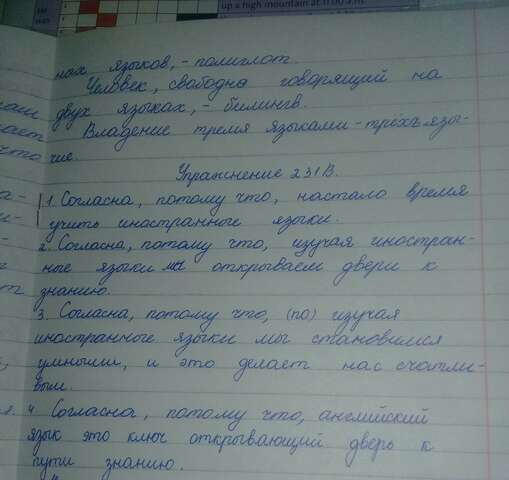 up a high mountain at 11.00 a.m.
ных языков, - полиглот.
Человек, свободно говорящий на
двух языках, - билингв.
Владение тремя языками - трёхъязы-
чие.
Упражнение 231В.
1. Согласна, потому что, настало время
учить иностранные языки.
2. Согласна, потому что, изучая иностран-
ные языки мы открываем двери к
знанию.
3. Согласна, потому что, (по) изучая
иностранные языки мы становимся
умными, и это делает нас счастли-
вым.
4. Согласна, потому что, английский
язык это ключ открывающий дверь к
пути знанию.